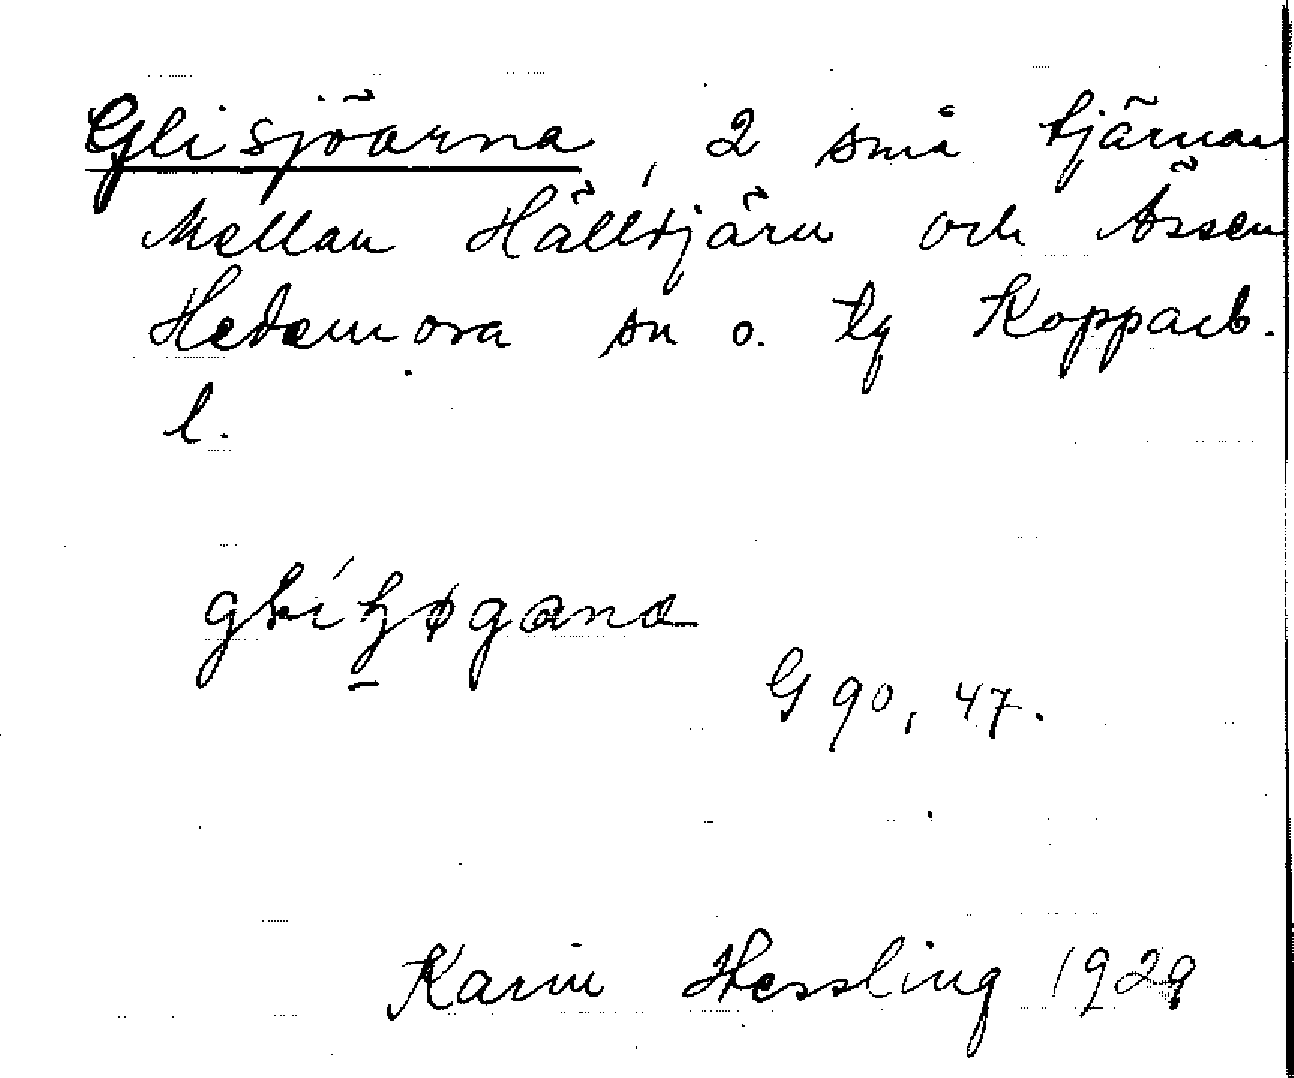 Glisjöarna, 2 små tjärnar
Mellan Hälltjärn och Ässen
Hedemora sn o. tg Kopparb.
l.
G 90, 47.
Karin Hessling 1929